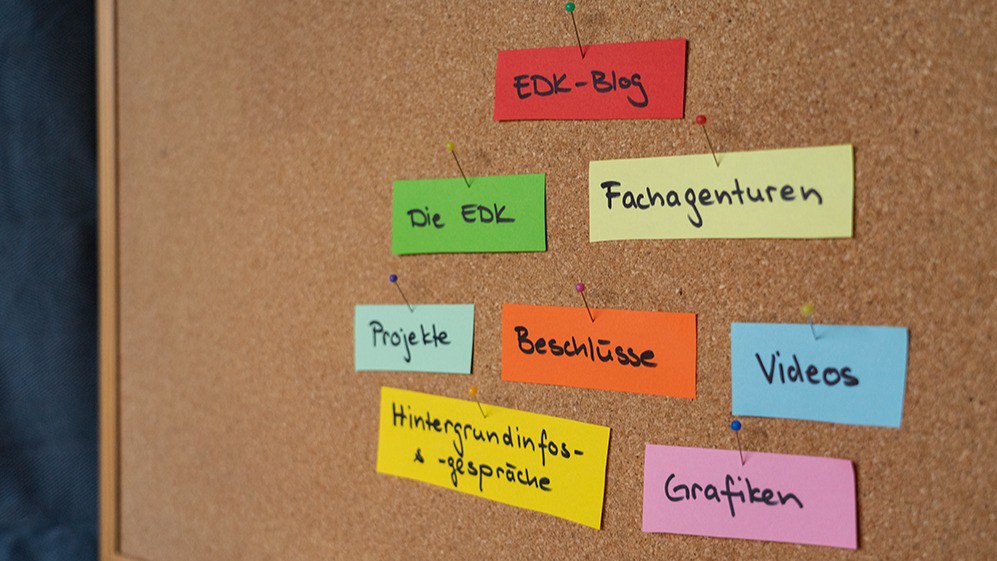 EDK-Blog
Die EDK
Fachagenturen
Projekte
Beschlüsse
Videos
Hintergrundinfos-
& -gespräche
Grafiken